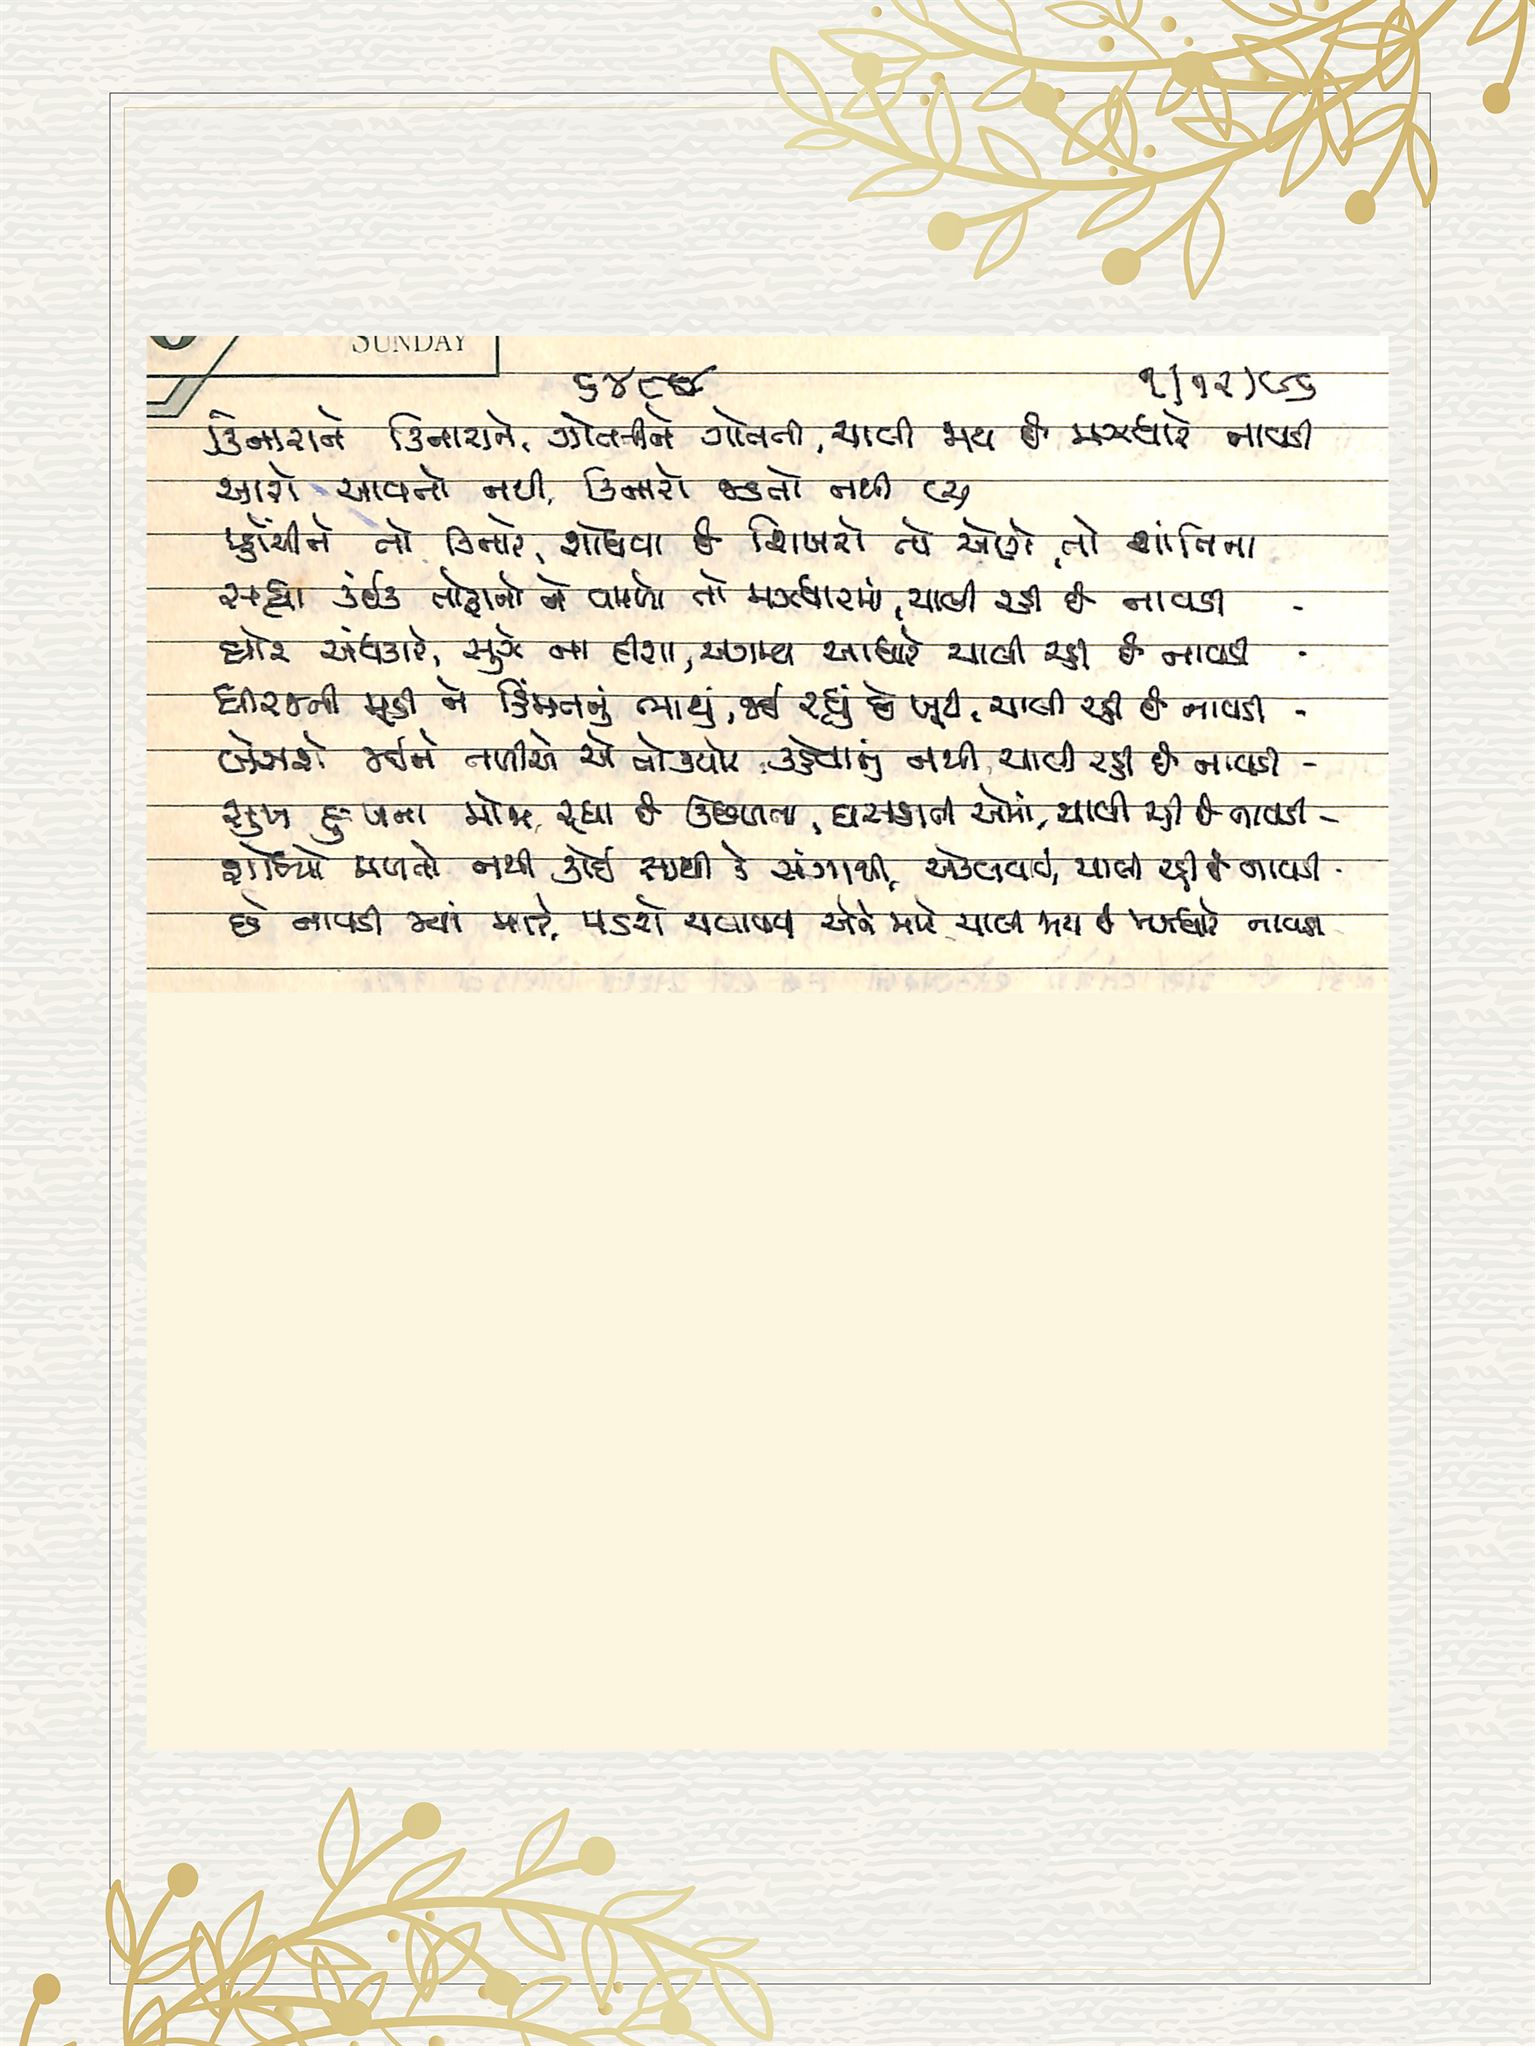 SUNDAY
૬૪૯૪ ૧/૧૨/૯૬
કિનારાને કિનારાને, ગોતતીને ગોતતી, ચાલી જાય છે મઝધારે નાવડી
આરો આવતો નથી, કિનારો જડતો નથી (૨)
પ્હોંચીને તો કિનારે, શોધવા છે શિખરો તો એણે, તો શાંતિના
સહ્યા કંઈક તોફાનો ને વમળો તો મઝધારમાં, ચાલી રહી છે નાવડી -
ઘોર અંધકારે, સુઝે ના દીશા, અગમ્ય આધારે ચાલી રહી છે નાવડી -
ધીરજની મૂડી ને હિંમતનું ભાથું, જઈ રહ્યું છે ખૂટી, ચાલી રહી છે નાવડી -
બેસશે જઈને તળીએ એ કહેવાનું નથી, ચાલી રહી છે નાવડી -
સુખ દુઃખના મોજા, રહ્યા છે ઉછળતા, ઘસડાતી એમાં, ચાલી રહી છે નાવડી -
શોધ્યો મળતો નથી કોઈ સાથી કે સંગાથી, એકલવાઈ, ચાલી રહી છે નાવડી -
છે નાવડી જ્યાં મારી, પડશે ચલાવવી એને મારે ચાલી જાય છે મઝધારે નાવડી